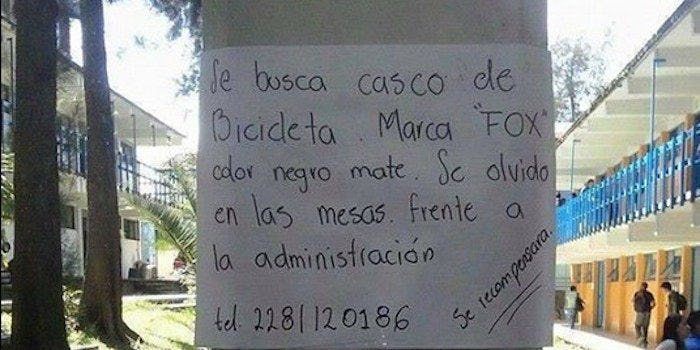 Se busca casco de
Bicicleta. Marca "FOX"
color negro mate. Se olvido
en las mesas. frente a
la administración
Se recompensara.
tel. 2281120186